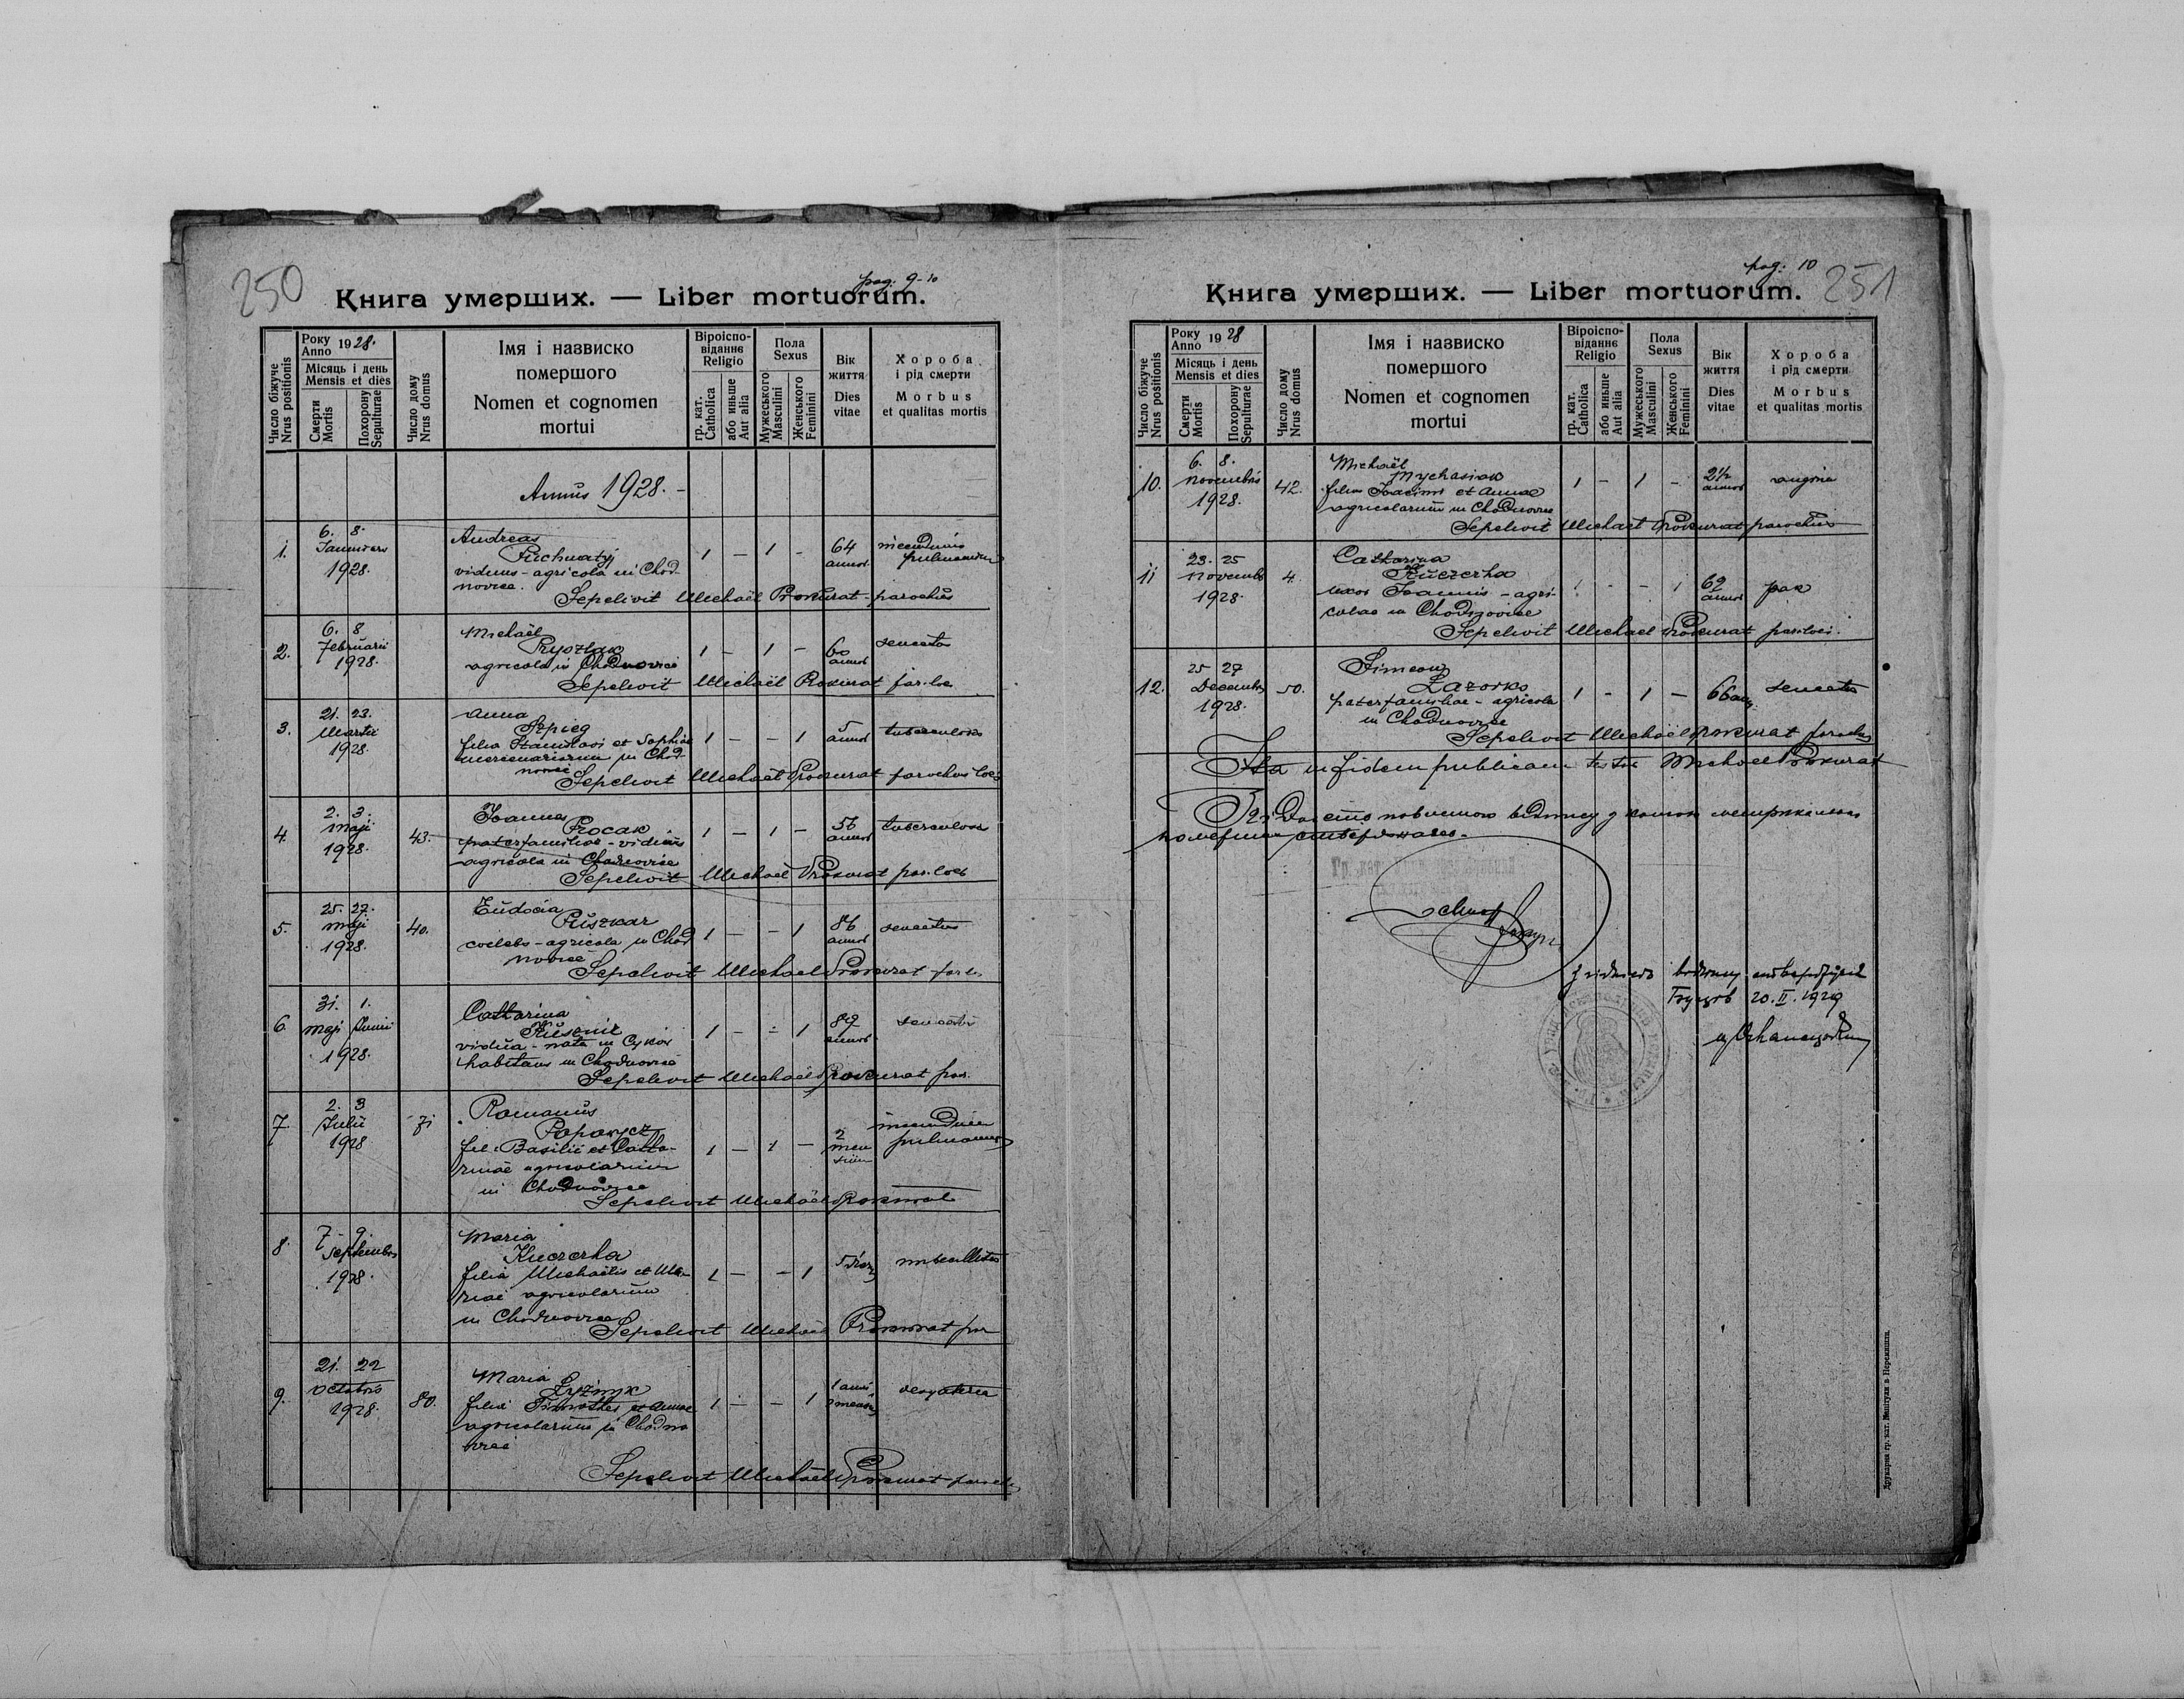 250
pag. 9-10
Книга умерших. — Liber mortuorum.
Число біжуче
Nrus positionis
Року
Anno 1928.
Місяць і день
Mensis et dies
Смерти
Mortis
Похорону
Sepulturae
Число дому
Nrus domus
Імя і назвиско
помершого
Nomen et cognomen
mortui
Віроіспо-
віданнє
Religio
гр. кат.
Catholica
або иньше
Aut alia
Пола
Sexus
Мужеського
Masculini
Женського
Feminini
Вік
життя
Dies
vitae
Хороба
і рід смерти
Morbus
et qualitas mortis
Annus 1928. -
1. 6. 8. Januarii 1928.
Andreas
Puchnatyj
viduus - agricola in Chod-
novice.
1 - 1 - 64 annos
Sepelivit Michaël Prokurat - parochus
2. 6. 8 Februarii 1928.
Michaël
agricola in Chodnovice
1 - 1 - 60 annos senectus
Sepelivit Michaël Prokurat par. loc
3. 21. 23. Martii 1928.
Anna
Szpieg
filia Stanislavi et Sophiae
mercenariorum in Chod-
novice
1 - - 1 5 annos tuberculosis
Sepelivit Michaël Prokurat parochus loci
4. 2. 3. Maji 1928. 43.
Joannes
Procak
paterfamiliae - viduus
agricola in Chodnovice
1 - 1 - 56 annos tuberculosis
Sepelivit Michaël Prokurat par. loci
5. 25. 27. Maji 1928. 40.
Eudocia
Puszkar
coelebs - agricola in Chod
novice
1 - - 1 86 annos senectus
Sepelivit Michaël Prokurat par. l.
6. 31. 1. Maji Junii 1928.
Catharina
vidua - nata in Cykow
habitans in Chodnovice
1 - - 1 89 annos senectus
Sepelivit Michaël Prokurat par.
7. 2. 3 Julii 1928 31
Romanus
Popowycz
fil. Basilii et Catha-
rinae agricolarum
in Chodnovice
1 - 1 - 2 men
sium
Sepelivit Michaël Prokurat
8. 7 - 9. Septembris 1928.
Maria
Kuczerha
filia Michaëlis et Ma-
riae agricolarum
in Chodnovice
1 - - 1 5 dies imbecillitas
Sepelivit Michaël Prokurat par
9. 21. 22 Octobris 1928. 80.
Maria
Lyźnyk
filia Timothei et Annae
agricolarum in Chodno
vice
1 - - 1 1 anni
Sepelivit Michaël Prokurat paroch.
pag: 10
251
Книга умерших. — Liber mortuorum.
Число біжуче
Nrus positionis
Року
Anno 1928
Місяць і день
Mensis et dies
Смерти
Mortis
Похорону
Sepulturae
Число дому
Nrus domus
Імя і назвиско
помершого
Nomen et cognomen
mortui
Віроіспо-
віданнє
Religio
гр. кат.
Catholica
або иньше
Aut alia
Пола
Sexus
Мужеського
Masculini
Женського
Feminini
Вік
життя
Dies
vitae
Хороба
і рід смерти
Morbus
et qualitas mortis
10. 6. 8. Novembris 1928. 42.
Michaël
Mychasiak
filius Joacimi et Annae
agricolarum in Chodnovice
1 - 1 - 2½ annos angina
Sepelivit Michaël Prokurat parochus
11 23. 25 Novembr 1928. 4.
Catharina
Kuczerha
uxor Joannis - agri-
colae in Chodnovice
1 - - 1 62 annos
Sepelivit Michael Prokurat par. loci.
12. 25 27 Decembris 1928. 50.
Simeon
Lazorko
paterfamiliae - agricola
in Chodnovice
1 - 1 - 66 ann. senectus
Sepelivit Michaël Prokurat parochus
Ita in fidem publicam testor Michael Prokurat
20. II. 1929
Друкарня гр. кат. Капітули в Перемишли.